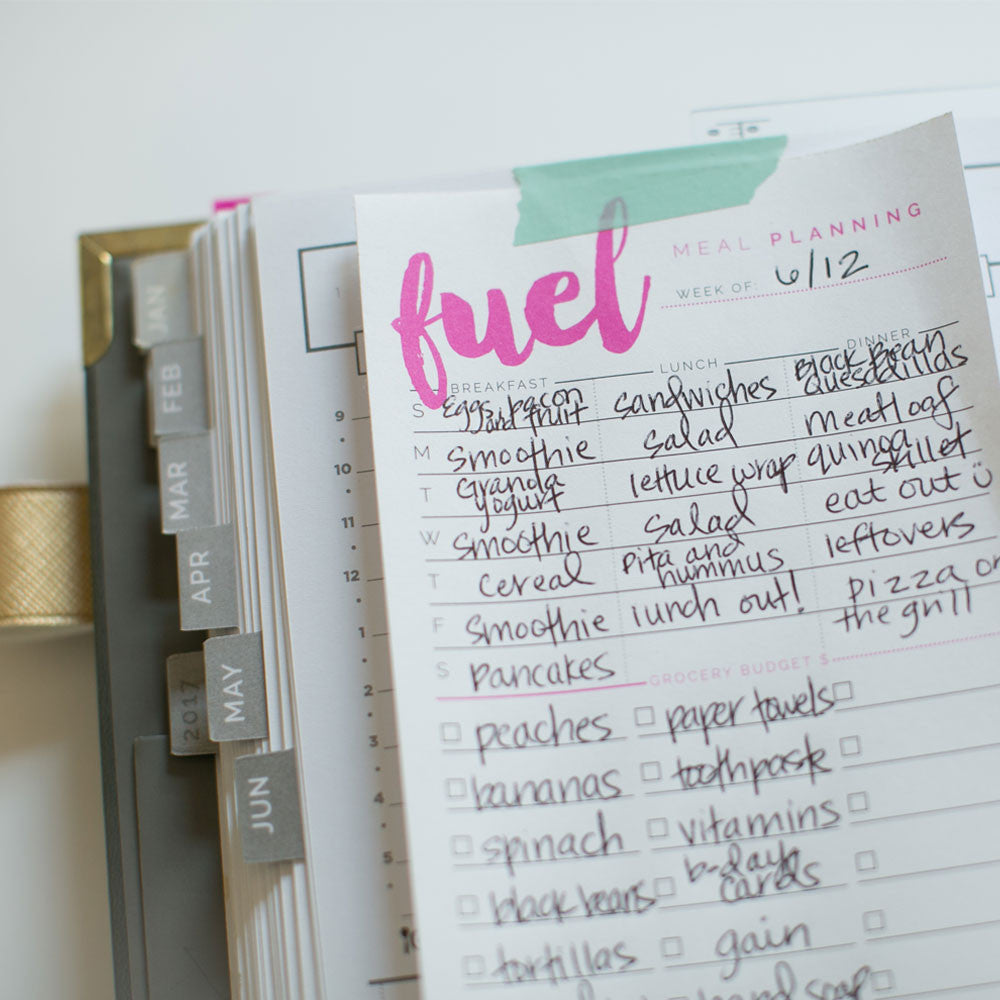 fuel
MEAL PLANNING
WEEK OF: 6/12
BREAKFAST LUNCH DINNER
S Eggs, bacon and fruit sandwiches Black Bean Quesadillas
M smoothie salad meatloaf
T Granola yogurt lettuce wrap quinoa skillet
W smoothie salad eat out
T cereal pita and hummus leftovers
F smoothie lunch out! pizza on the grill
S pancakes
GROCERY BUDGET $
peaches paper towels
bananas toothpaste
spinach vitamins
black beans b-day cards
tortillas gain
hand soap
JAN
FEB
MAR
APR
2017
MAY
JUN
9
10
11
12
1
2
3
4
5